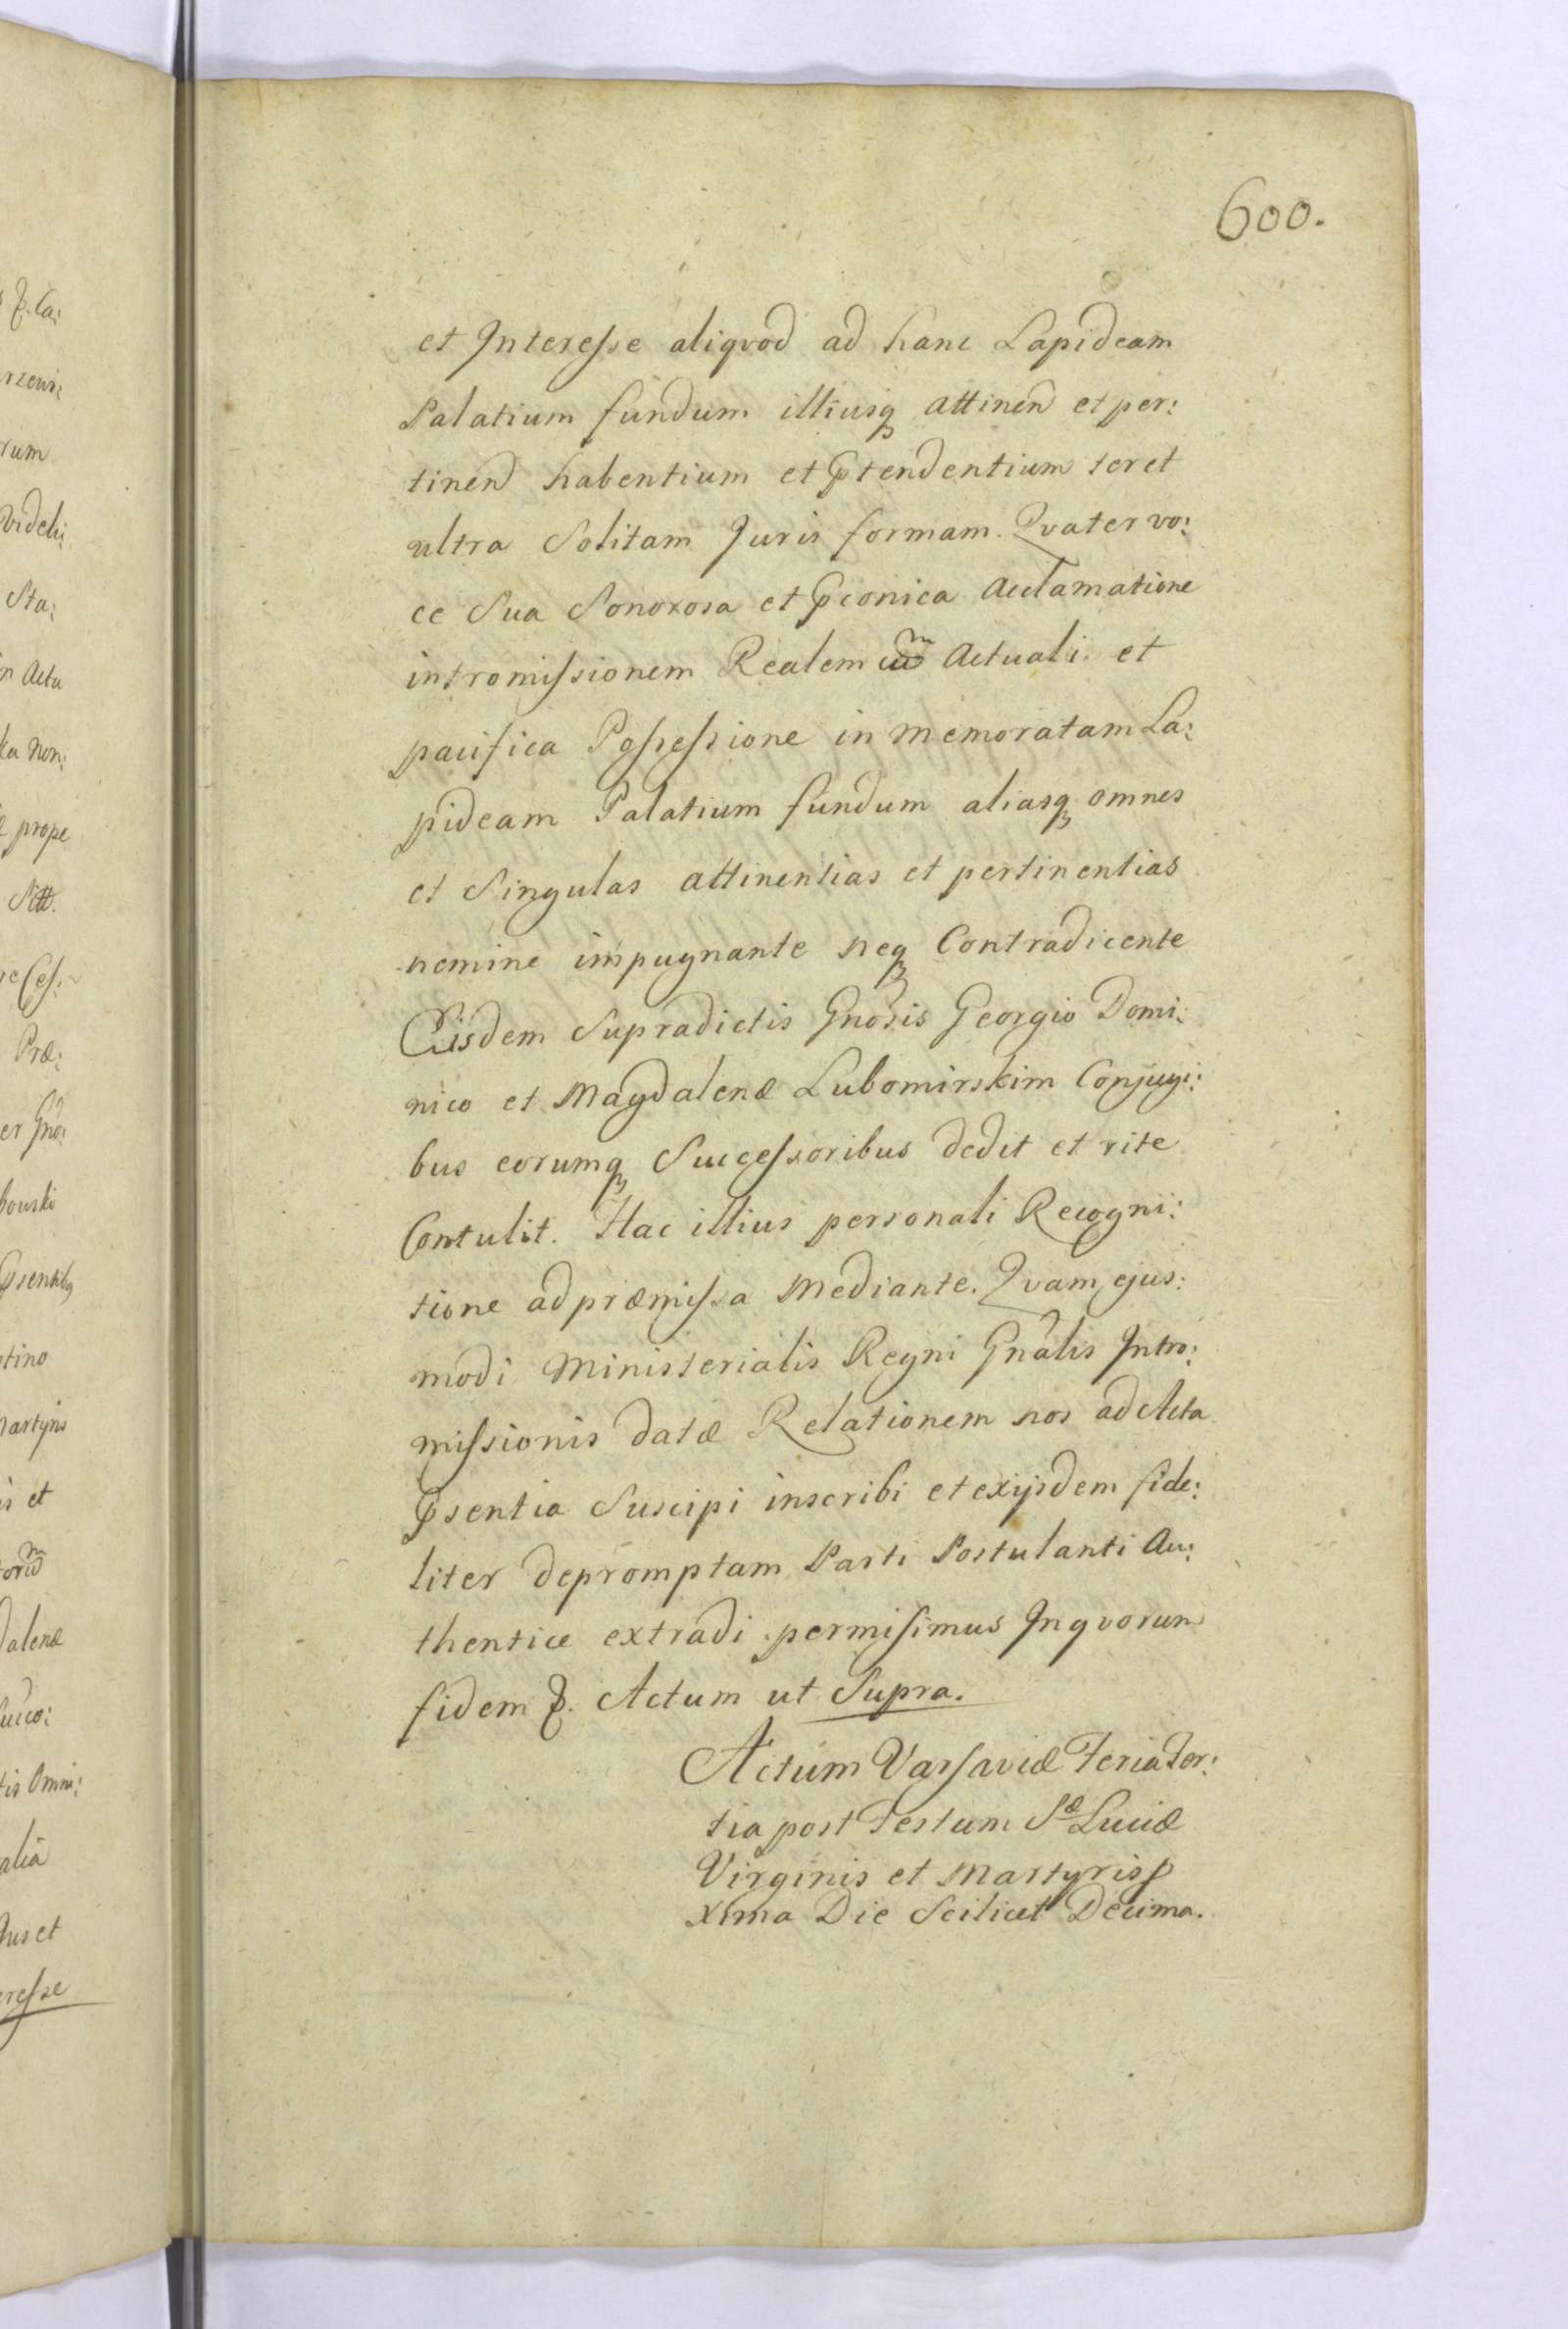 600.
et Interesse aliqvod ad hanc Lapideam
Palatium fundum illiusq attinen et per:
tinen habentium et Ptendentium ter et
ultra Solitam Juris formam. Qvater vo:
ce Sua Sonorosa et Pconica Acclamatione
intromissionem Realem cum Actuali et
pacifica Possessione in memoratam La:
pideam Palatium fundum aliasq omnes
et Singulas attinentias et pertinentias
nemine impugnante neq Contradicente
Eisdem Supradictis Gnosis Georgio Domi:
nico et Magdalenæ Lubomirskim Conjugi:
bus eorumq Successoribus dedit et rite
Contulit. Hac illius personali Recogni:
tione ad præmissa Mediante. Qvam ejus:
modi Ministerialis Regni Gnalis Intro:
missionis datæ Relationem nos ad Acta
Psentia Suscipi inscribi et ex ijsdem fide:
liter depromptam Parti Postulanti Au:
thentice extradi permisimus Inqvorum
fidem &. Actum ut Supra.
Actum Varsaviæ Feria Ter:
tia post Festum Sæ Luciæ
Virginis et Martyris p
xima Die Scilicet Decima.